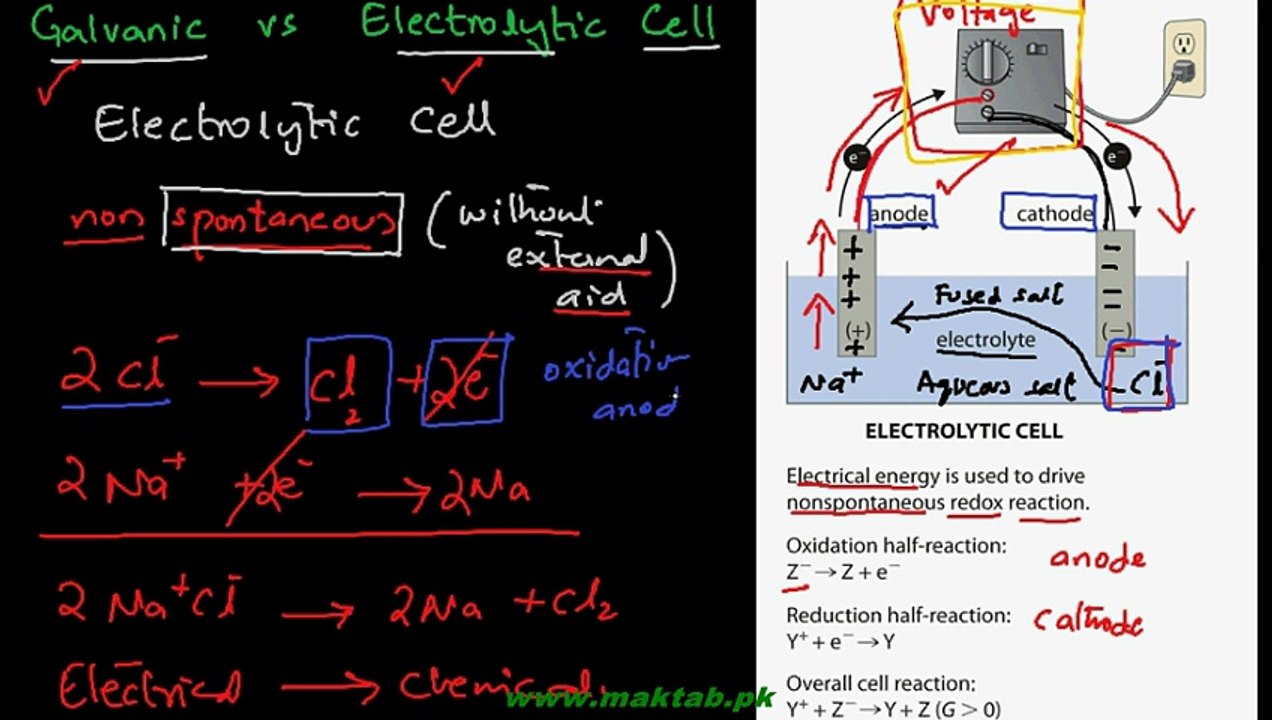 Galvanic vs Electrolytic Cell
Electrolytic Cell
non spontaneous (without
external
aid)
2Cl⁻ → Cl₂ + 2e⁻ oxidation
anod
2Na⁺ +2e⁻ → 2Na
2Na⁺Cl⁻ → 2Na + Cl₂
Electrical → Chemical
www.maktab.pk
Voltage
e⁻ e⁻
anode cathode
+ −
+ −
+ Fused salt −
(+) electrolyte (−)
+
Na⁺ Aqueous salt Cl⁻
ELECTROLYTIC CELL
Electrical energy is used to drive
nonspontaneous redox reaction.
Oxidation half-reaction: anode
Z⁻ → Z + e⁻
Reduction half-reaction: Cathode
Y⁺ + e⁻ → Y
Overall cell reaction:
Y⁺ + Z⁻ → Y + Z (G > 0)